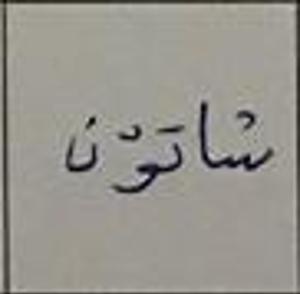 شاتوْن